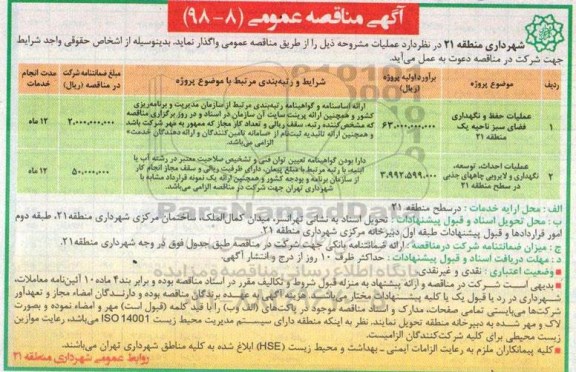 آگهی مناقصه عمومی (۸-۹۸)
شهرداری منطقه ۲۱ در نظر دارد عملیات مشروحه ذیل را از طریق مناقصه عمومی واگذار نماید. بدینوسیله از اشخاص حقوقی واجد شرایط
جهت شرکت در مناقصه دعوت به عمل می‌آید.
ردیف موضوع پروژه برآورد اولیه پروژه (ریال) شرایط و رتبه‌بندی مرتبط با موضوع پروژه مبلغ ضمانتنامه شرکت در مناقصه (ریال) مدت انجام خدمات
۱ عملیات حفظ و نگهداری فضای سبز ناحیه یک منطقه ۲۱ ۶۳,۰۰۰,۰۰۰,۰۰۰
ارائه اساسنامه و گواهینامه رتبه‌بندی مرتبط از سازمان مدیریت و برنامه‌ریزی
کشور و همچنین ارائه پرینت سایت آن سازمان در اسناد و در روز برگزاری مناقصه
که مشخص‌کننده رتبه، سقف ریالی و تعداد کار مجاز که ممهور به مهر شرکت باشد
و همچنین ارائه تائیدیه ثبت‌نام از «سامانه تامین‌کنندگان و ارائه دهندگان خدمت»
الزامی می‌باشد.
۲,۰۰۰,۰۰۰,۰۰۰ ۱۲ ماه
۲ عملیات احداث، توسعه، نگهداری و لایروبی چاههای جذبی در سطح منطقه ۲۱ ۳,۹۹۲,۵۹۹,۰۰۰
دارا بودن گواهینامه تعیین توان فنی و تشخیص صلاحیت معتبر در رشته آب یا
ابنیه، با رتبه مرتبط با مبلغ پیمان، دارای ظرفیت ریالی و سقف مجاز انجام کار
از سازمان برنامه و بودجه کشور و همچنین ارائه یک نمونه قرارداد مشابه با
شهرداری تهران جهت شرکت در مناقصه الزامی می‌باشد.
۵۰,۰۰۰,۰۰۰ ۱۲ ماه
الف: محل ارایه خدمات: در سطح منطقه ۲۱
ب: محل تحویل اسناد و قبول پیشنهادات: تحویل اسناد به نشانی تهرانسر، میدان کمال‌الملک، ساختمان مرکزی شهرداری منطقه ۲۱، طبقه دوم
امور قراردادها و قبول پیشنهادات طبقه اول دبیرخانه مرکزی شهرداری منطقه ۲۱.
ج: میزان ضمانتنامه شرکت در مناقصه: ارائه ضمانتنامه بانکی جهت شرکت در مناقصه طبق جدول فوق در وجه شهرداری منطقه ۲۱.
د: مهلت دریافت اسناد و قبول پیشنهادات: حداکثر ظرف ۱۰ روز از درج و انتشار آگهی.
وضعیت اعتباری: نقدی و غیرنقدی
بدیهی است شرکت در مناقصه و ارائه پیشنهاد به منزله قبول شروط و تکالیف مقرر در اسناد مناقصه بوده و برابر بند ۴ ماده ۱۰ آئین‌نامه معاملات،
شهرداری در رد یا قبول یک یا کلیه پیشنهادات مختار می‌باشد.
شرکت‌ها می‌بایستی تمامی صفحات، مدارک و اسناد مناقصه موجود در پاکت‌های (الف وب) را با قید کلمه (قبول است) مهر و امضاء نموده و بصورت
لاک و مهر شده به دبیرخانه منطقه تحویل نمایند. نظر به اینکه منطقه دارای سیستم مدیریت محیط زیست ISO 14001 می‌باشد، رعایت موازین
زیست محیطی برای کلیه شرکت‌کنندگان الزامیست.
کلیه پیمانکاران ملزم به رعایت الزامات ایمنی - بهداشت و محیط زیست (HSE) ابلاغ شده به کلیه مناطق شهرداری تهران می‌باشند.
روابط عمومی شهرداری منطقه ۲۱